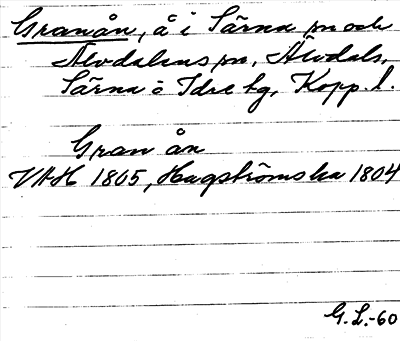 Granån, å i Särna sn och
Älvdalens sn, Älvdals,
Särna o Idre tg, Kopp. l.
Gran ån
VAH 1805, Hagströmska 1804
G.L.-60